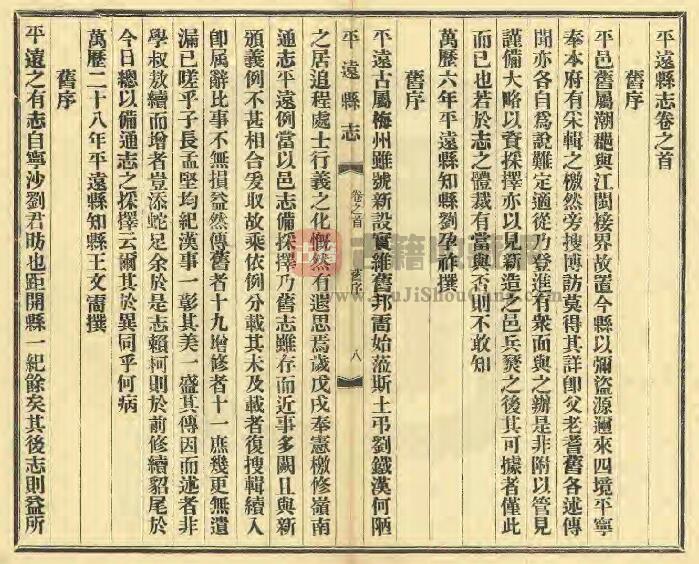 平遠縣志卷之首
舊序
平邑舊屬潮郡與江閩接界故置今縣以彌盜源邇來四境平寧
奉本府有宋輯之檄然旁搜博訪莫得其詳即父老耆舊各述傳
聞亦各自爲說難定適從乃登進有衆面與之辦是非附以管見
謹備大略以資採擇亦以見新造之邑兵燹之後其可據者僅此
而已也若於志之體裁有當與否則不敢知
萬歷六年平遠縣知縣劉孕祚撰
舊序
平遠古屬梅州雖號新設實維舊邦需始蒞斯土弔劉鐵漢何陋
平遠縣志 卷之首 舊序 八
之居追程處士行義之化慨然有遐思焉歲戊戌奉憲檄修嶺南
通志平遠例當以邑志備採擇乃舊志雖存而近事多闕且與新
頒義例不甚相合爰取故乘依例分載其未及載者復搜輯續入
卽屬辭比事不無損益然傳舊者十九增修者十一庶幾更無遺
漏已嗟乎子長孟堅均紀漢事一彰其美一盛其傳因而述者非
學叔敖續而增者豈添蛇足余於是志賴柯則於前修續貂尾於
今日總以備通志之採擇云爾其於異同乎何病
萬歷二十八年平遠縣知縣王文需撰
舊序
平遠之有志自寧沙劉君昉也距開縣一紀餘矣其後志則益所